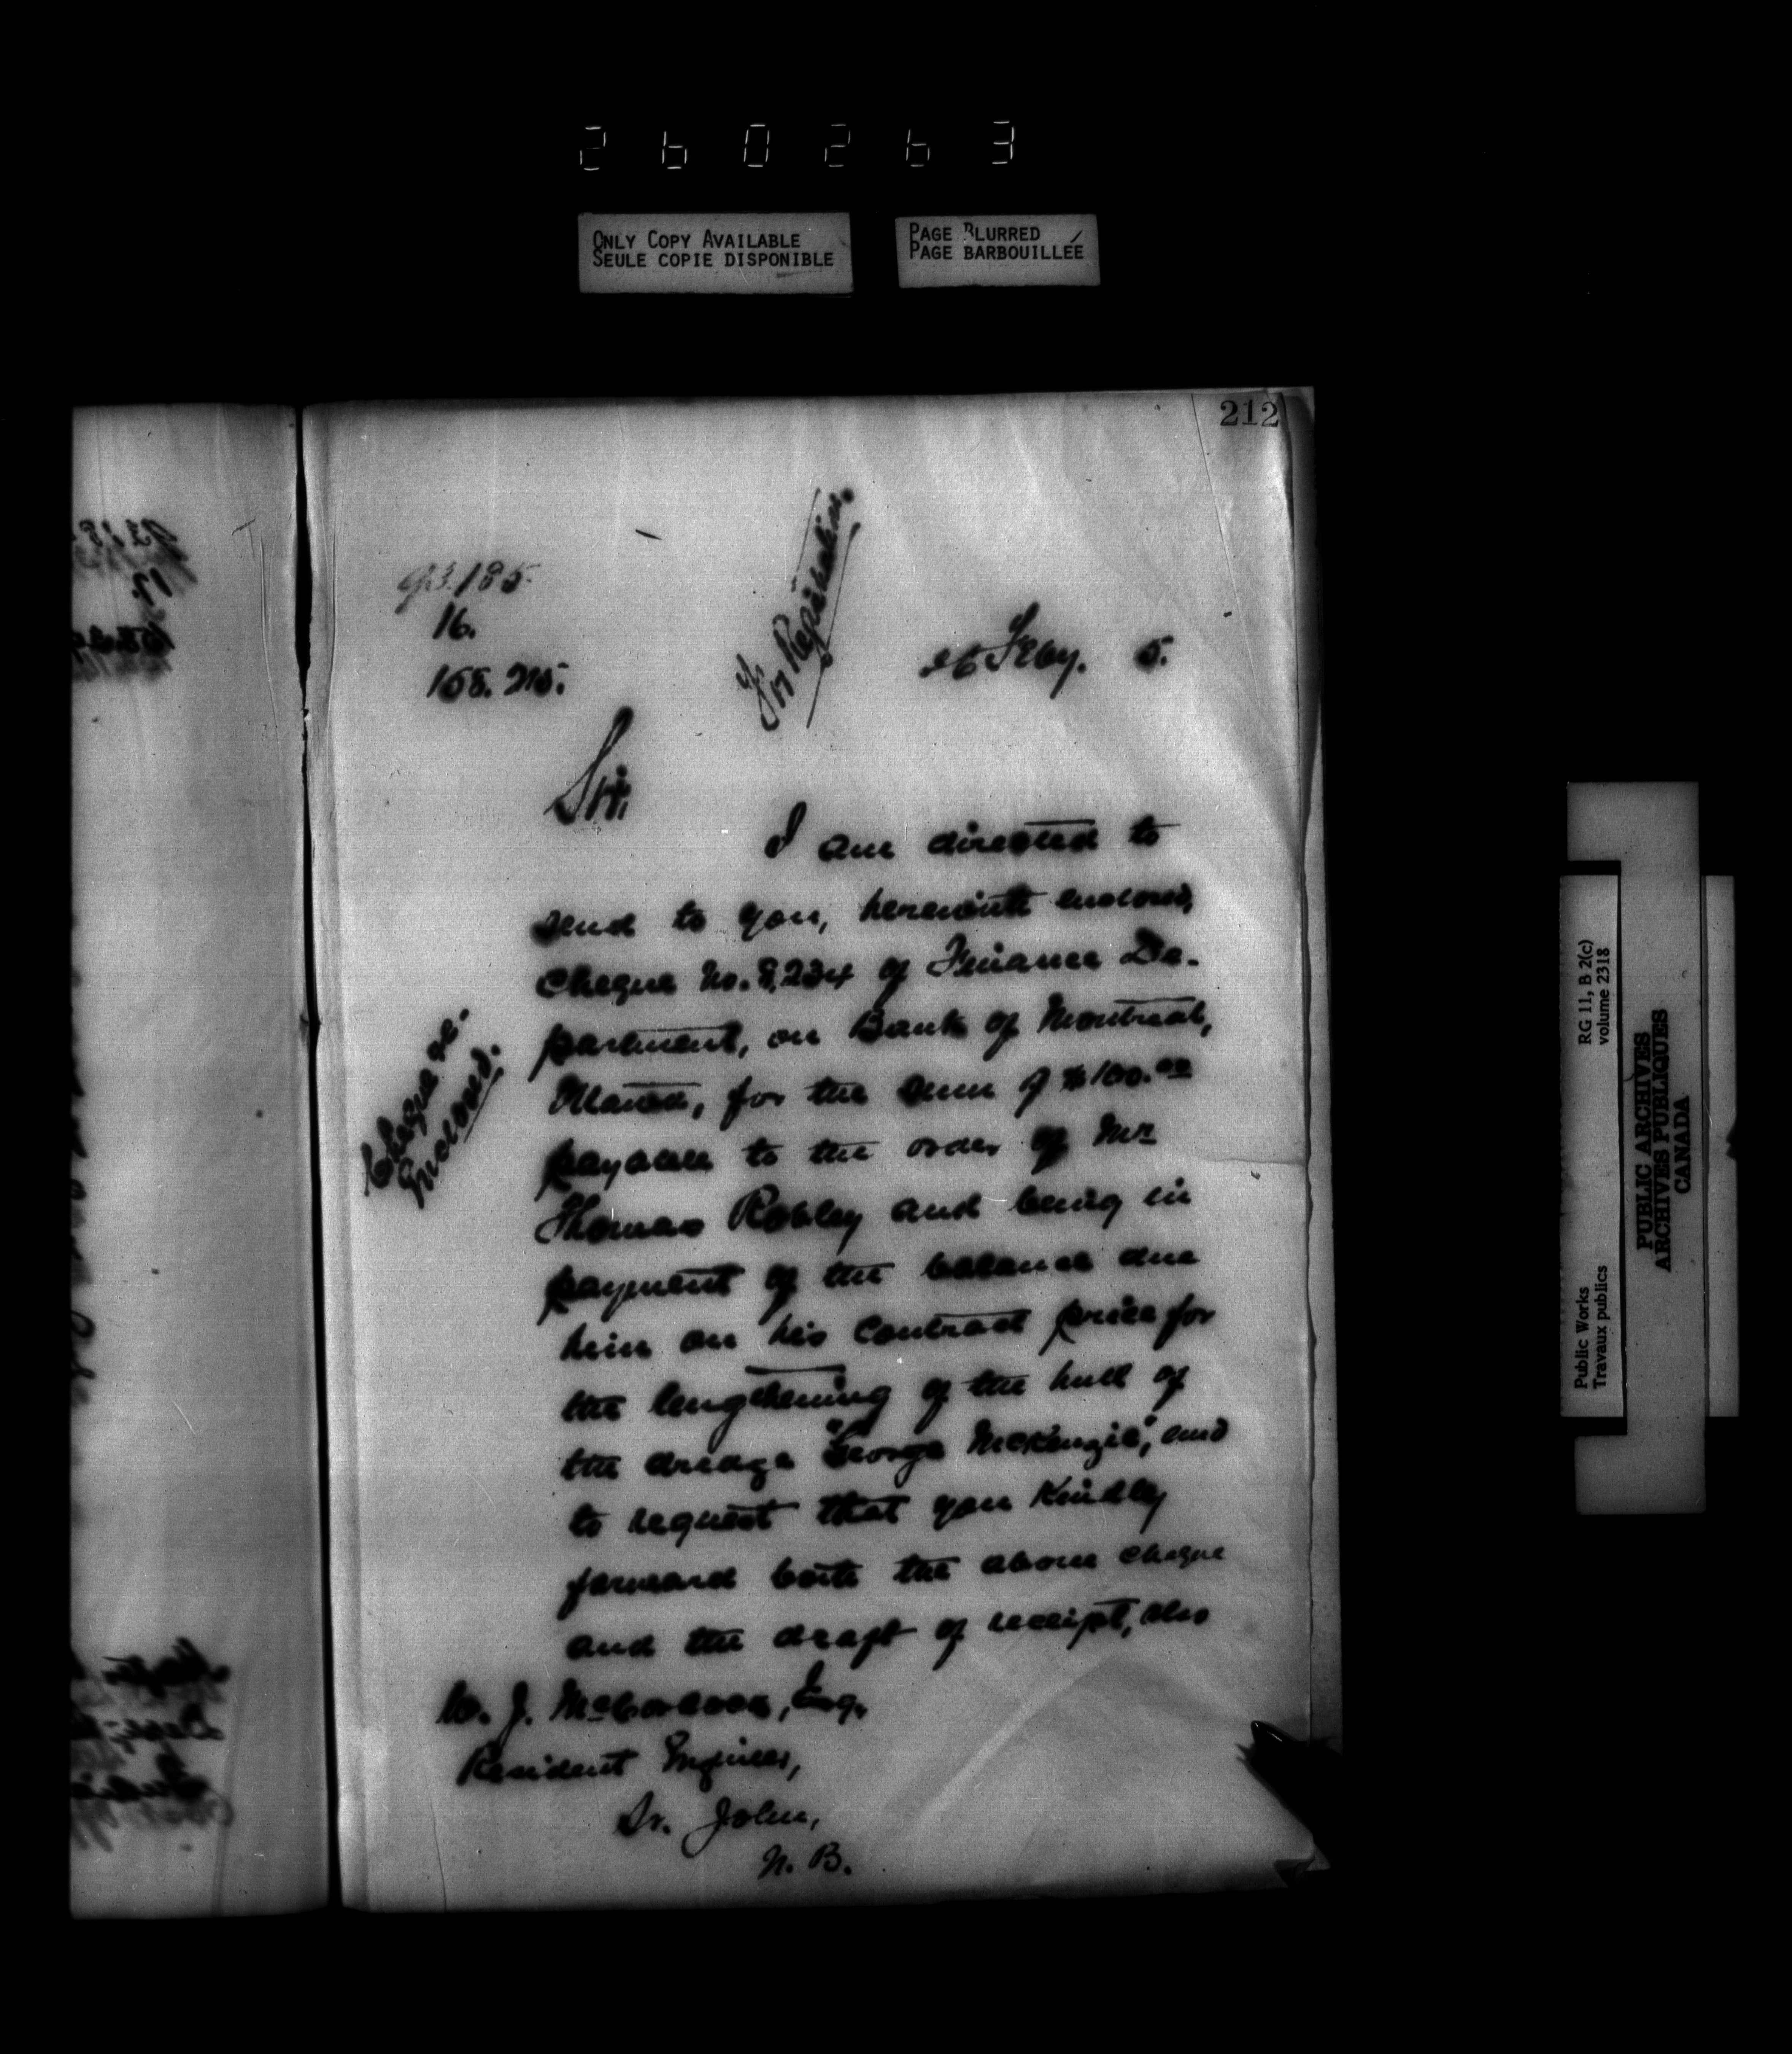 260263
ONLY COPY AVAILABLE
SEULE COPIE DISPONIBLE
PAGE BLURRED
PAGE BARBOUILLÉE
212
93.185.
16.
158.215.
26 Feby. 5.
Sir,
I am directed to
send to you, herewith enclosed,
cheque No. 8,234 of Finance De-
partment, on Bank of Montreal,
Ottawa, for the sum of $100.00
payable to the order of Mr
Thomas Robley and being in
payment of the balance due
him on his contract price for
the lengthening of the hull of
the dredge "George McKenzie", and
to request that you kindly
forward both the above cheque
and the draft of receipt, also
Cheque re-
Enclosed.
W. J. McCordock, Esq.
Resident Engineer,
St. John,
N. B.
Public Works
Travaux publics
RG 11, B 2(c)
volume 2318
PUBLIC ARCHIVES
ARCHIVES PUBLIQUES
CANADA